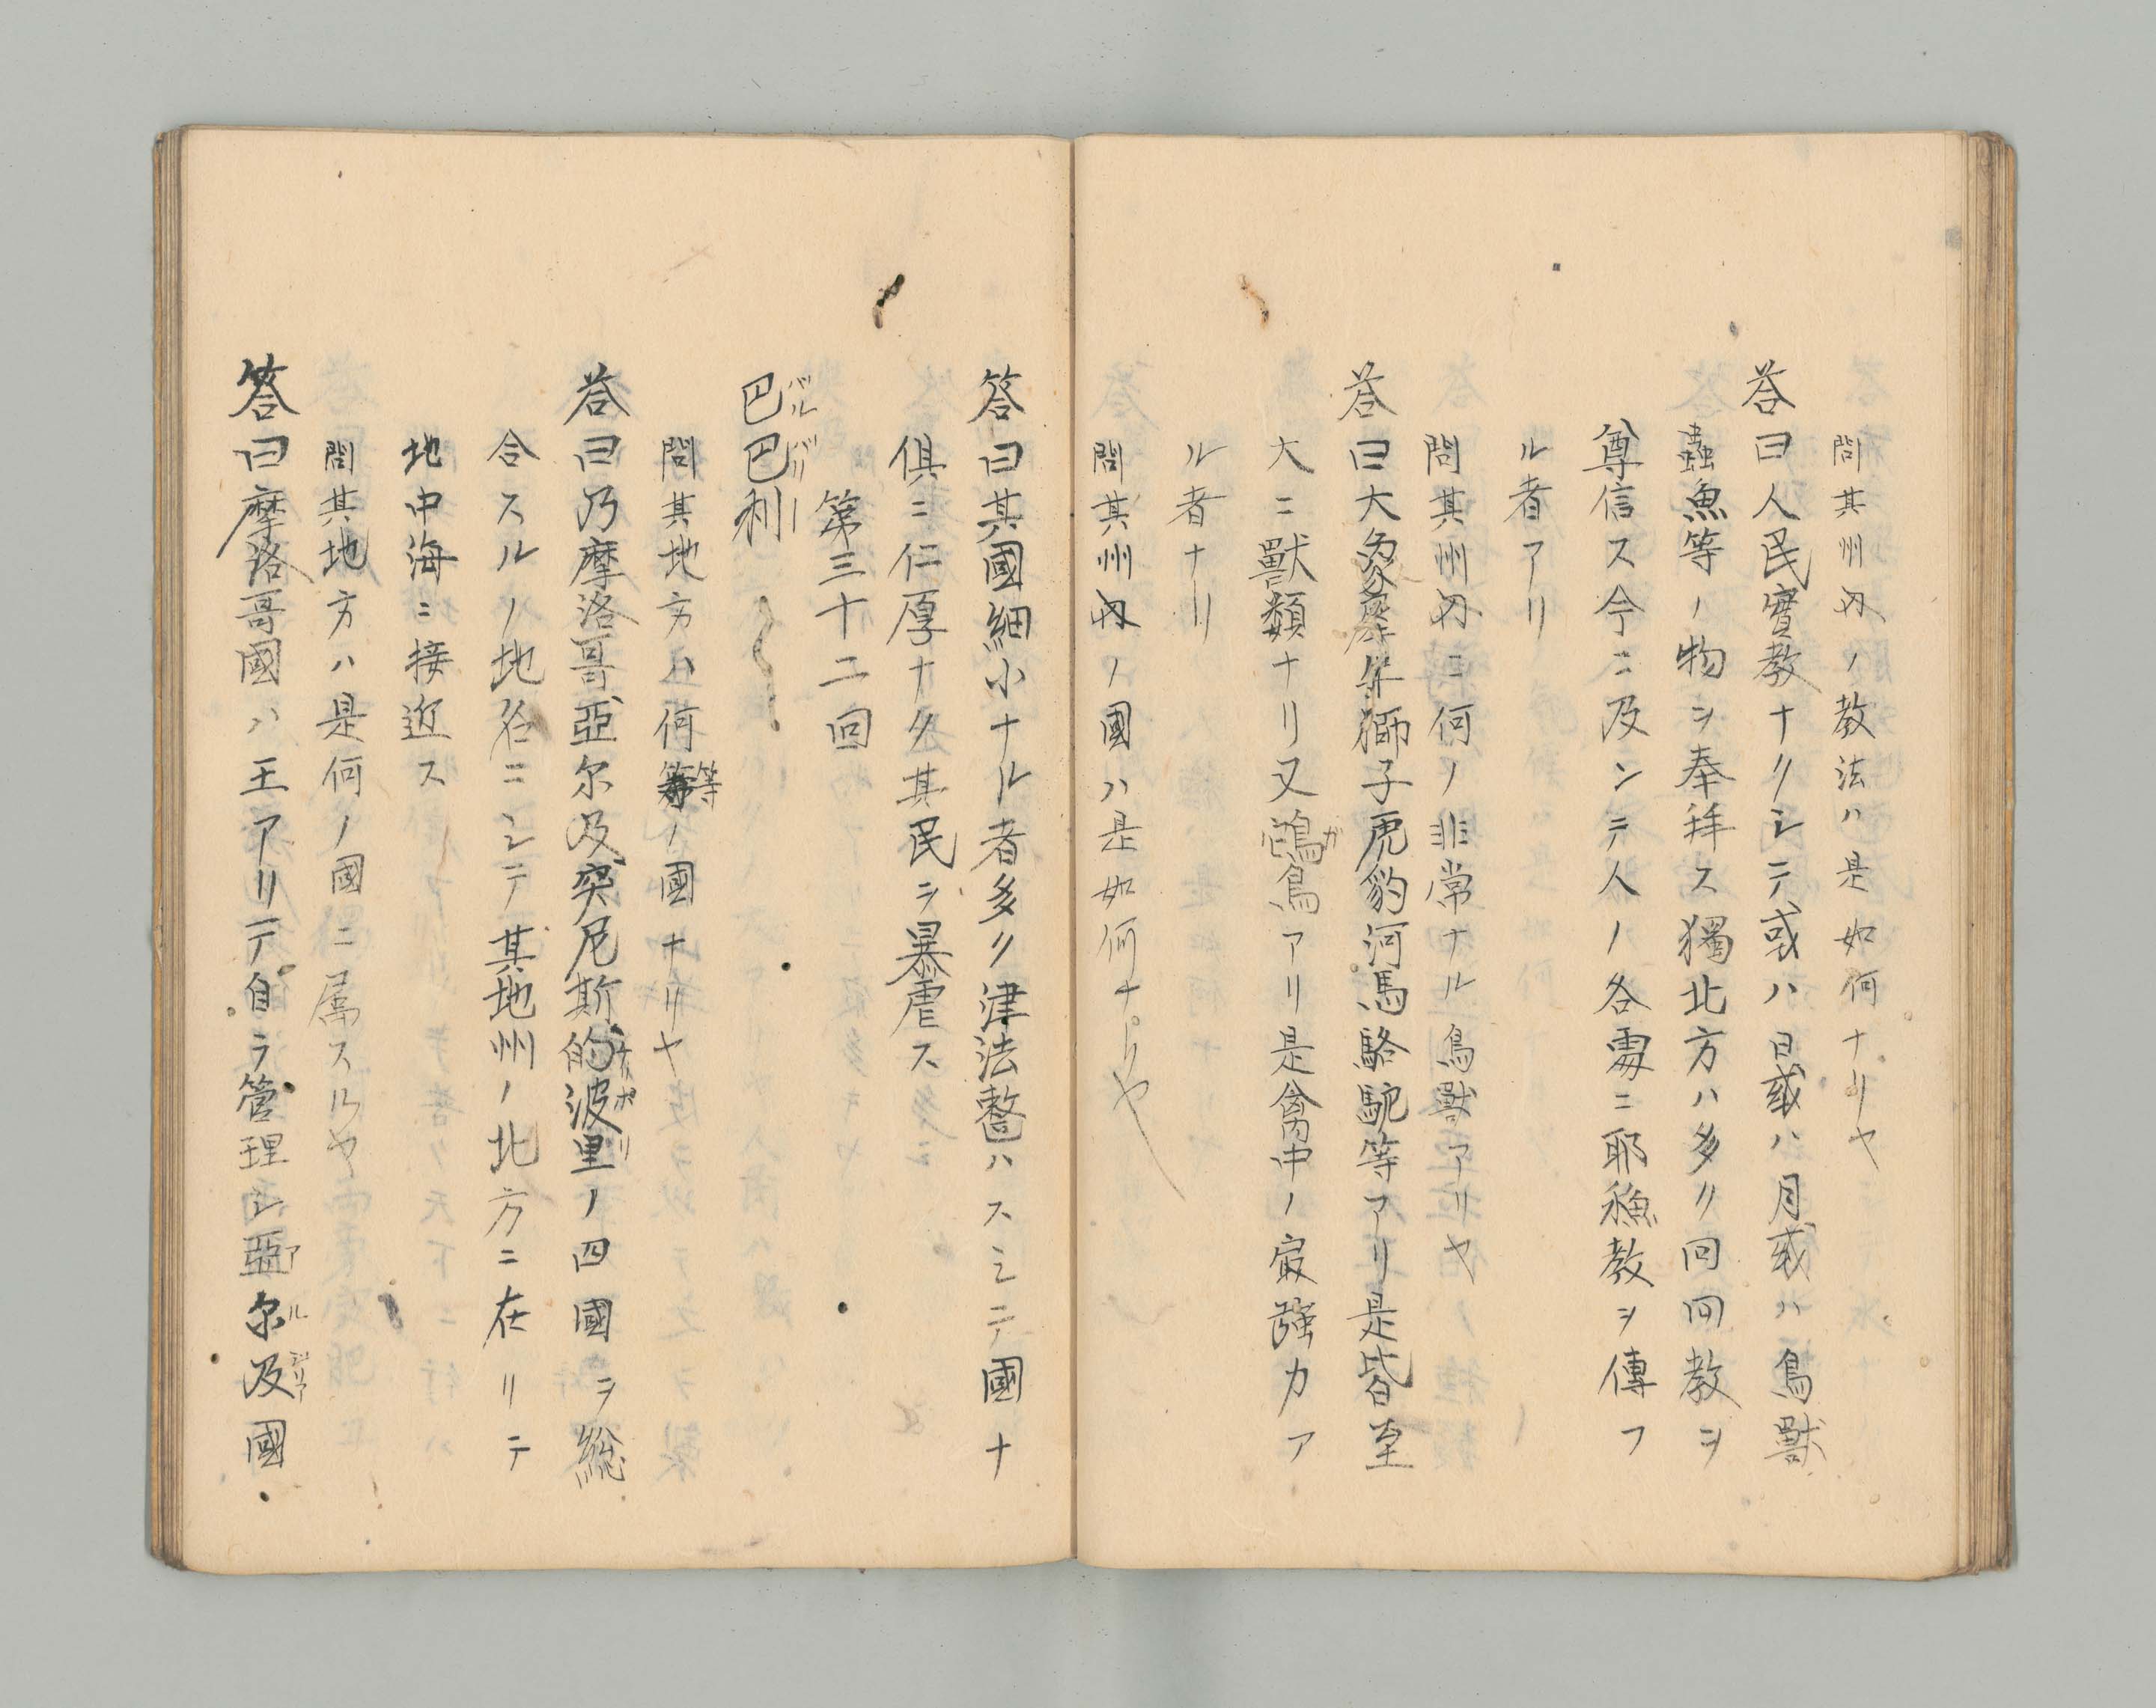 問其州内ノ教法ハ是如何ナリヤ
答曰人民實教ナクシテ或ハ日或ハ月或ハ鳥獸
蟲魚等ノ物ヲ奉拜ス獨北方ハ多ク回回教ヲ
尊信ス今ニ及ンテ人ノ各處ニ耶穌教ヲ傳フ
ル者アリ
問其州内ニ何ノ非常ナル鳥獸アリヤ
答曰大象犀牛獅子虎豹河馬駱駝等アリ是皆至
大ニ獸類ナリ又鴕鳥アリ是禽中ノ最強力ア
ル者ナリ
問其州内ノ國ハ是如何ナリヤ
答曰其國細小ナル者多ク津法整ハスシテ國ナ
俱ニ仁厚ナク其民ヲ暴虐ス
第三十二回
巴巴利 バルバリー
問其地方ハ何等ノ國ナリヤ
答曰乃摩洛哥亞尔及突尼斯的波里ノ四國ヲ総
合スルノ地名ニシテ其地州ノ北方ニ在リテ
地中海ニ接近ス
問其地方ハ是何ノ國ニ属スルヤ
答曰摩洛哥國ハ王アリテ自ラ管理シ亞尔及國